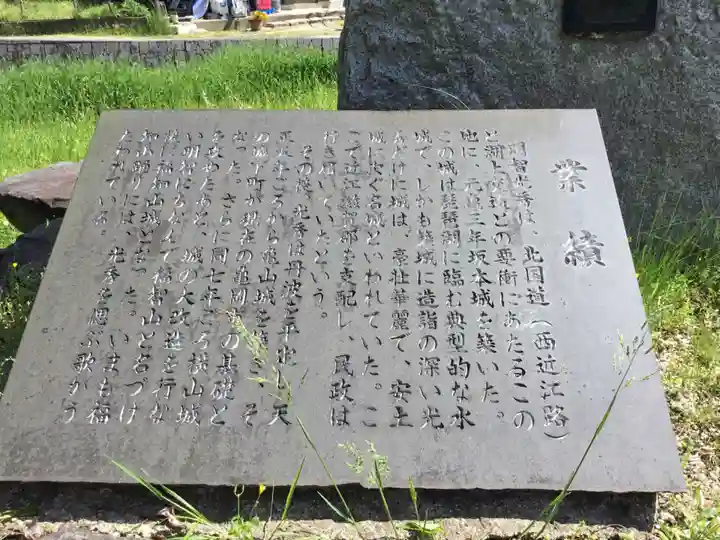 業績
明智光秀は、北国道(西近江路)
と湖上交通との要衝にあたるこの
地に 元亀三年坂本城を築いた。
この城は琵琶湖に臨む典型的な水
城で しかも築城に造詣の深い光
秀だけに城は、豪壮華麗で、安土
城に次ぐ名城といわれていた。こ
こで近江滋賀郡を支配し、民政は
行き届いていたという。
その後、光秀は丹波を平定 天
正五年ごろから亀山城を築き そ
の城下町が現在の亀岡 の基礎と
なった。さらに同七年ごろ横山城
を攻めたあと、城の大改築を行な
い明智にちなんで福智山と名づけ
福知山城となった。いまも福
知山踊りには、光秀を偲ぶ歌がう
たわれている。